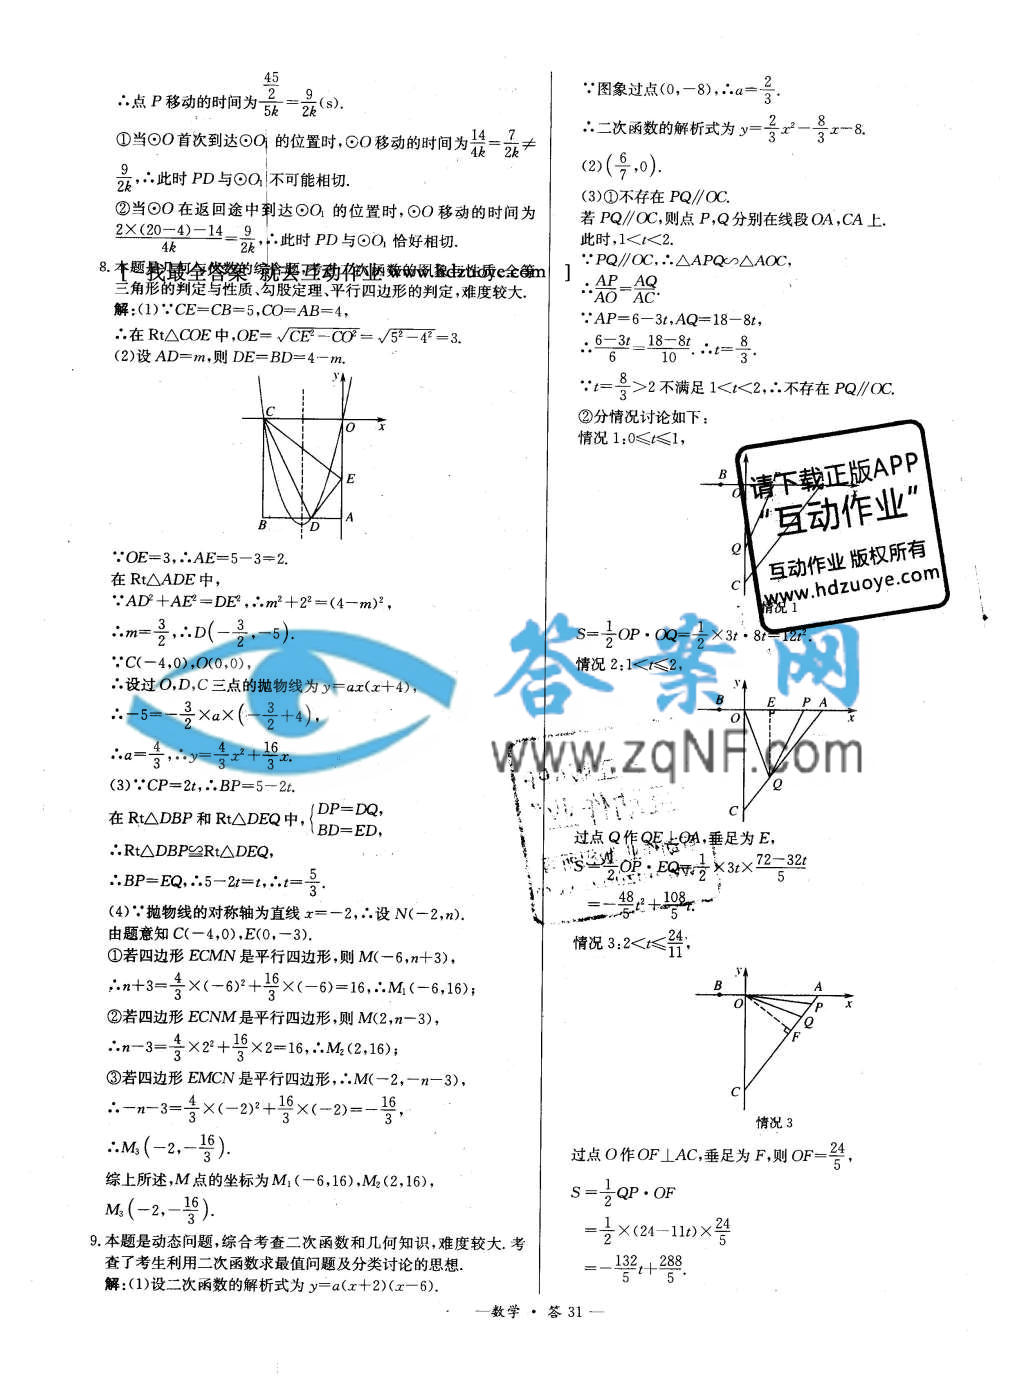 ∴点 P 移动的时间为 (45/2)/(5k)=9/(2k)(s).
①当⊙O 首次到达⊙O₁ 的位置时,⊙O 移动的时间为 14/(4k)=7/(2k)≠
9/(2k),∴此时 PD 与⊙O₁不可能相切.
②当⊙O 在返回途中到达⊙O₁ 的位置时,⊙O 移动的时间为
(2×(20-4)-14)/(4k)=9/(2k),∴此时 PD 与⊙O₁ 恰好相切.
8. 本题是几何与代数的综合题,考查了二次函数的图象与性质、全等
[ 找最全答案 就去互动作业 www.hdzuoye.com ]
三角形的判定与性质、勾股定理、平行四边形的判定,难度较大.
解:(1)∵CE=CB=5,CO=AB=4,
∴在 Rt△COE 中,OE=√(CE²-CO²)=√(5²-4²)=3.
(2)设 AD=m,则 DE=BD=4-m.
y
C
O
x
E
B
D
A
∵OE=3,∴AE=5-3=2.
在 Rt△ADE 中,
∵AD²+AE²=DE²,∴m²+2²=(4-m)²,
∴m=3/2,∴D(-3/2,-5).
∵C(-4,0),O(0,0),
∴设过 O,D,C 三点的抛物线为 y=ax(x+4),
∴-5=-3/2×a×(-3/2+4),
∴a=4/3,∴y=4/3x²+16/3x.
(3)∵CP=2t,∴BP=5-2t.
在 Rt△DBP 和 Rt△DEQ 中,{DP=DQ,
BD=ED,
∴Rt△DBP≌Rt△DEQ,
∴BP=EQ,∴5-2t=t,∴t=5/3.
(4)∵抛物线的对称轴为直线 x=-2,∴设 N(-2,n).
由题意知 C(-4,0),E(0,-3).
①若四边形 ECMN 是平行四边形,则 M(-6,n+3),
∴n+3=4/3×(-6)²+16/3×(-6)=16,∴M₁(-6,16);
②若四边形 ECNM 是平行四边形,则 M(2,n-3),
∴n-3=4/3×2²+16/3×2=16,∴M₂(2,16);
③若四边形 EMCN 是平行四边形,∴M(-2,-n-3),
∴-n-3=4/3×(-2)²+16/3×(-2)=-16/3,
∴M₃(-2,-16/3).
综上所述,M 点的坐标为 M₁(-6,16),M₂(2,16),
M₃(-2,-16/3).
9. 本题是动态问题,综合考查二次函数和几何知识,难度较大. 考
查了考生利用二次函数求最值问题及分类讨论的思想.
解:(1)设二次函数的解析式为 y=a(x+2)(x-6).
∵图象过点(0,-8),∴a=2/3.
∴二次函数的解析式为 y=2/3x²-8/3x-8.
(2)(6/7,0).
(3)①不存在 PQ∥OC.
若 PQ∥OC,则点 P,Q 分别在线段 OA,CA 上.
此时,1<t<2.
∵PQ∥OC,∴△APQ∽△AOC,
∴AP/AO=AQ/AC.
∵AP=6-3t,AQ=18-8t,
∴(6-3t)/6=(18-8t)/10.∴t=8/3.
∵t=8/3>2 不满足 1<t<2,∴不存在 PQ∥OC.
②分情况讨论如下:
情况 1:0≤t≤1,
B
O
Q
C
请下载正版APP
"互动作业"
互动作业 版权所有
www.hdzuoye.com
情况 1
S=1/2OP·OQ=1/2×3t·8t=12t².
情况 2:1<t≤2,
答案网
www.zqNF.com
y
B
O
E
P
A
x
Q
C
过点 Q 作 QE⊥OA,垂足为 E,
S=1/2OP·EQ=1/2×3t×(72-32t)/5
=-48/5t²+108/5t.
情况 3:2<t≤24/11,
y
B
O
A
x
P
Q
F
C
情况 3
过点 O 作 OF⊥AC,垂足为 F,则 OF=24/5,
S=1/2QP·OF
=1/2×(24-11t)×24/5
=-132/5t+288/5.
—数学·答 31—